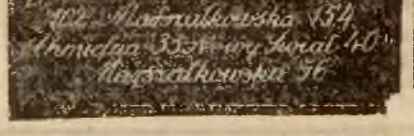 102 Marszałkowska 154
Chmielna 33 Nowy Świat 40
Marszałkowska 56